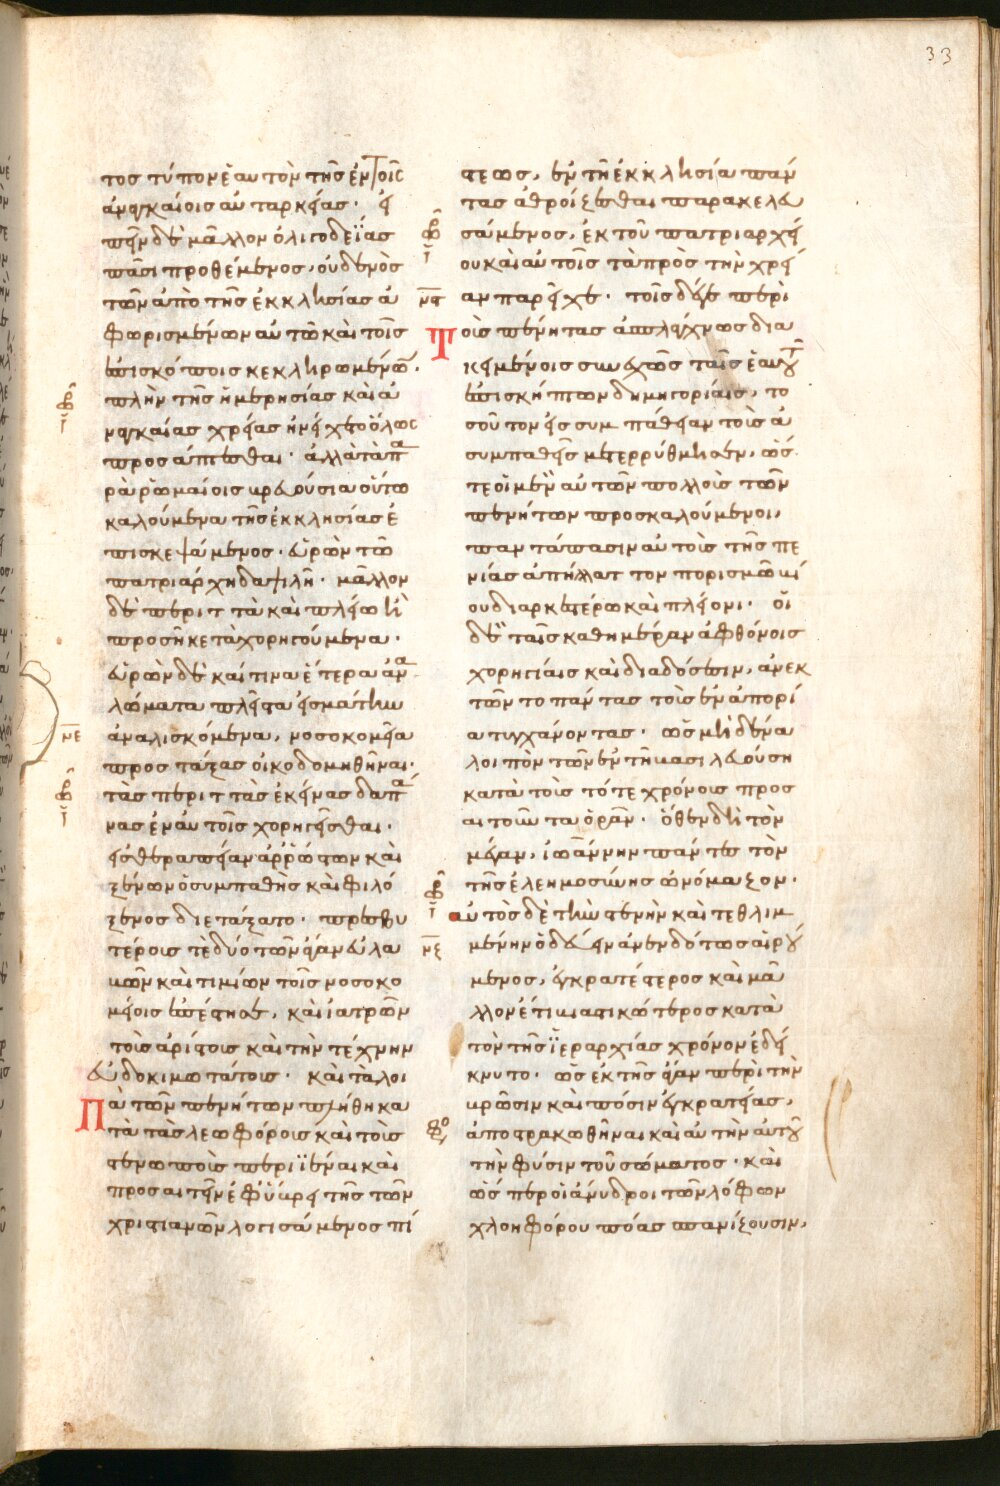 33
τος τύπον ἑαυτὸν τῆς ἐν τοῖς
ἀναγκαίοις αὐταρκείας· ἐ
πεῖν δὲ μᾶλλον ὀλιγοδεΐας
πᾶσι προθέμενος, οὐδενὸς
τῶν ἀπὸ τῆς ἐκκλησίας ἀ
φωρισμένων αὐτῶ καὶ τοῖς
ἐπισκόποις κεκληρωμένων·
πλὴν τῆς ἡμερησίας καὶ ἀ
ναγκαίας χρείας ἠνείχετο ὅλως
προσάπτεσθαι· ἀλλὰ τὰ πα
ρὰ ῥωμαίοις βρεούσια οὕτω
καλούμενα τῆς ἐκκλησίας ἐ
πισκεψάμενος· εὑρὼν τῶ
πατριάρχη δαψιλῆ· μᾶλλον
δὲ περιττὰ καὶ πλέω ἢ
προσῆκε τὰ χορηγούμενα·
εὑρὼν δὲ καί τινα ἕτερα ἀνα
λώματα πλεῖστα εἰς μάτην
ἀναλισκόμενα, νοσοκομεῖα
νε
προστάξας οἰκοδομηθῆναι·
τὰς περιττὰς ἐκείνας δαπά
νας ἐν αὐτοῖς χορηγεῖσθαι·
εἰς θεραπείαν ἀρρώστων καὶ
ξένων ὁ συμπαθὴς καὶ φιλό
ξενος διετάξατο· πρεσβυ
τέροις τὲ δύο τῶν ἄγαν εὐλα
βῶν καὶ τιμίων τοῖς νοσοκο
μείοις ἐπέστησε, καὶ ἰατρῶν
τοῖς ἀρίστοις καὶ τὴν τέχνην
εὐδοκιμωτάτοις· καὶ τὰ λοι
Πὰ τῶν πενήτων πλήθη κα
τὰ τὰς λεωφόροις καὶ τοὶς
στενωποὶς περιϊέναι καὶ
προσαιτεῖν ἐφύβρει τῆς τῶν
χριστιανῶν λογισάμενος πί
στεως, ἐν τῆ ἐκκλησία πάν
τας ἀθροίζεσθαι παρακελευ
σάμενος, ἐκ τοῦ πατριαρχεί
ου καὶ αὐτοῖς τὰ πρὸς τὴν χρεί
νς
αν παρεῖχε· τοῖς δέ γε περὶ
Τοὶς πένητας ἀσπλάγχνως δια
κειμένοις συνεχῶς ταῖς ἑαυτοῦ
ἐπισκήπτων δημηγορίαις, το
σοῦτον εἰς συμπάθειαν τοὶς ἀ
συμπαθεῖς μετερρύθμησεν, ὥσ
τε οἱ μὲν αὐτῶν πολλοὶς τῶν
πενήτων προσκαλούμενοι,
παντάπασιν αὐτοὶς τῆς πε
νίας ἀπήλλαττον πορισμῶ βί
ου διαρκεστέρω καὶ πλέονι· οἱ
δὲ ταῖς καθημέραν ἀφθόνοις
χορηγίαις καὶ διαδόσεσιν, ἀνεκ
τῶντο πάντας τοὶς ἐν ἀπορί
α τυγχάνοντας· ὡς μηδένα
λοιπὸν τῶν ἐν τῆ βασιλευούση
κατὰ τοὶς τότε χρόνοις προσ
αιτοῦντα ὁρᾶν· ὅθεν δὴ τὸν
μέγαν, ἰωάννην πάντες τὸν
τῆς ἐλεημοσύνης ὠνόμαζον·
αὐτὸς δὲ τὴν στενὴν καὶ τεθλιμ
νζ
μένην ὁδεύειν ἀνενδότως αἱρού
μενος, ἐγκρατέστερος καὶ μᾶ
λλον ἔτι βιαστικώτερος κατὰ
τὸν τῆς ἱεραρχίας χρόνον ἐδεί
κνυτο· ὡς ἐκ τῆς ἄγαν περὶ τὴν
βρῶσιν καὶ πόσιν ἐγκρατείας,
ἀποστρακωθῆναι καὶ αὐτὴν αὐτοῦ
τὴν φύσιν τοῦ σώματος· καὶ
ὥσπερ οἱ ἄνυδροι τῶν λόφων
χλοηφόρου πόας σπανίζουσιν,